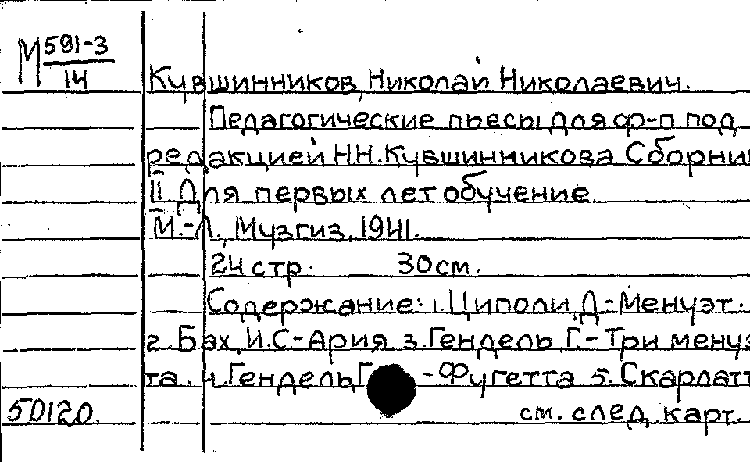 М 591-3
14
Кувшинников, Николай Николаевич.
Педагогические пьесы для ф-п под
редакцией Н.Н.Кувшинникова Сборник
II Для первых лет обучение
М.-Л., Музгиз, 1941.
24 стр. 30 см.
Содержание: 1. Циполи, Д.-Менуэт.
2. Бах, И.С-Ария 3. Гендель Г.-Три менуэ
та. 4. Гендель, Г. -Фугетта 5. Скарлатт
50120. см. след. карт.